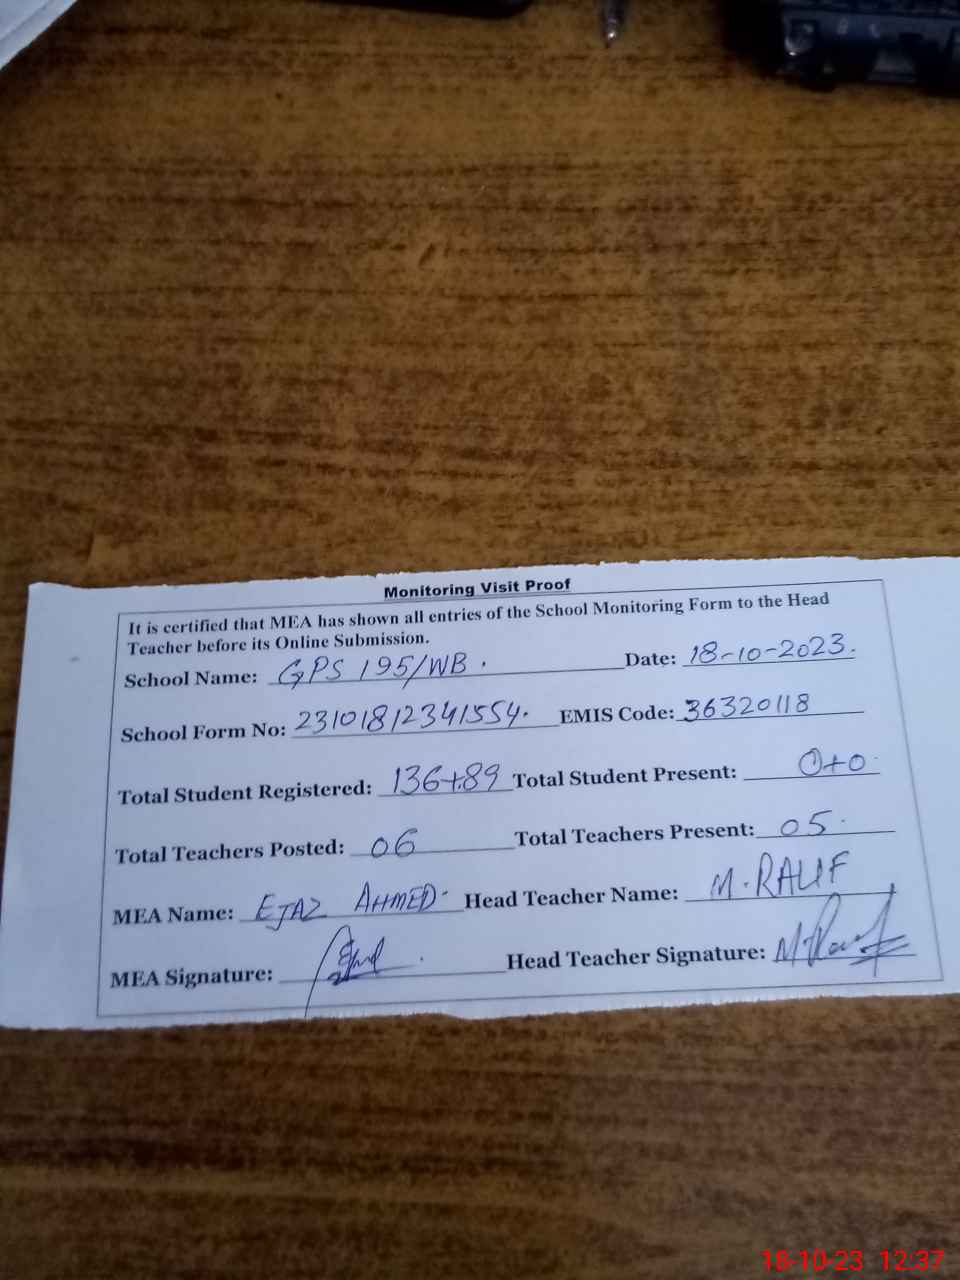 Monitoring Visit Proof
It is certified that MEA has shown all entries of the School Monitoring Form to the Head
Teacher before its Online Submission.
School Name: GPS 195/WB. Date: 18-10-2023.
School Form No: 23101812341554. EMIS Code: 36320118
Total Student Registered: 136+89 Total Student Present: 0+0
Total Teachers Posted: 06 Total Teachers Present: 05.
MEA Name: EJAZ AHMED. Head Teacher Name: M. RAUF
MEA Signature: Head Teacher Signature: M. Rauf
18-10-23 12:37